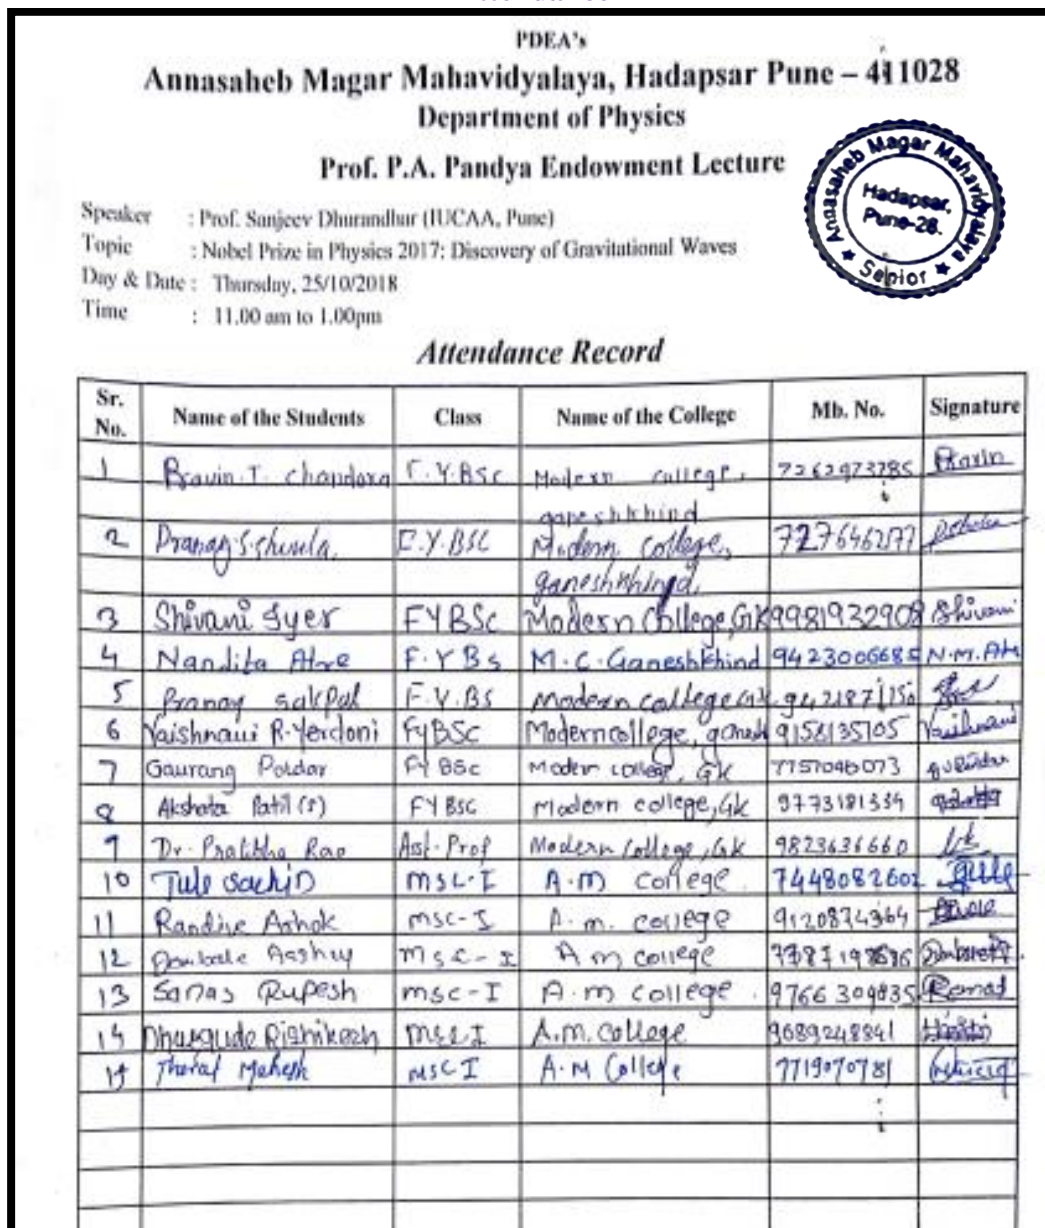 PDEA's
Annasaheb Magar Mahavidyalaya, Hadapsar Pune – 411028
Department of Physics
Prof. P.A. Pandya Endowment Lecture
Annasaheb Magar Mahavidyalaya
Hadapsar,
Pune-28.
★ Senior ★
Speaker : Prof. Sanjeev Dhurandhur (IUCAA, Pune)
Topic : Nobel Prize in Physics 2017: Discovery of Gravitational Waves
Day & Date : Thursday, 25/10/2018
Time : 11.00 am to 1.00pm
Attendance Record
Sr. No. Name of the Students Class Name of the College Mb. No. Signature
1 Pravin.T. chandora F.Y.BSc Modern college, 7262973785 Pravin
ganeshkhind
2 Pranay.S. F.Y.BSc Modern College, 727646277
ganeshkhind.
3 Shivani Iyer FYBSc Modern College, GK 9981932908 Shivani
4 Nandita Atre F.Y.Bs M.C.Ganeshkhind 9423006685 N.M.Atr
5 Pranay sakpal F.Y.BS Modern college GK.
6 Vaishnavi R.Yerdoni FYBSc Modern college, ganesh 9158135105 Vaishnavi
7 Gaurang Potdar FYBSc Modern college, GK 7757046073
8 Akshata Patil (P) FYBSC Modern college, GK 9773181334
9 Dr. Pratibha Rao Asst. Prof Modern College, GK 9823636660
10 Tule Sachin MSc-I A.M College 7448082602
11 Randive Ashok msc-I A.m. college 9120874364
12 Aashuy Msc-I A m college
13 Sanas Rupesh msc-I A.m college 9766309835
14 Dhargude Rishikesh MSc-I A.M. College 9689248841
14 Thorat Mahesh MSC I A.M College 7719070781